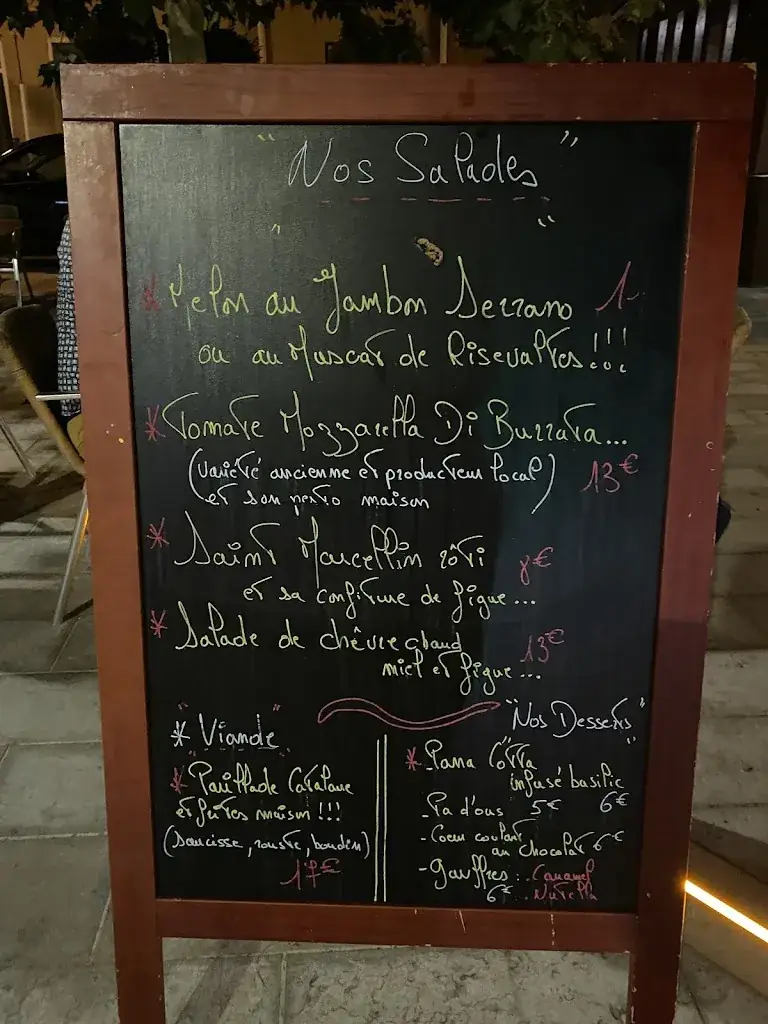 " Nos Salades "
* Melon au Jambon Serrano
ou au Muscat de Risevaltes!!!
* Tomate Mozzarella Di Burrata...
(variété ancienne et producteur local) 13€
et son pesto maison
* Saint Marcellin rôti 8€
et sa confiture de figue...
* Salade de chèvre chaud 13€
miel et figue...
* "Viande"
* Paillade Catalane
et frites maison !!!
(saucisse, rouste, boudin)
17€
"Nos Desserts"
* Pana Cotta
infusé basilic
6€
- Pa d'ous 5€
- Coeur coulant
au chocolat 6€
- Gauffres : . Caramel
6€ . Nutella